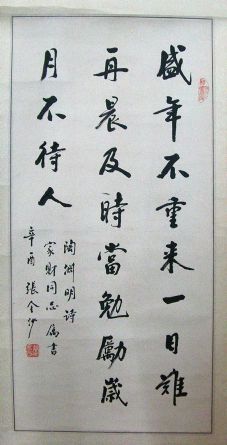 盛年不重来一日難
再晨及時當勉勵歲
月不待人
陶淵明詩
家财同志属書
辛酉張金沙